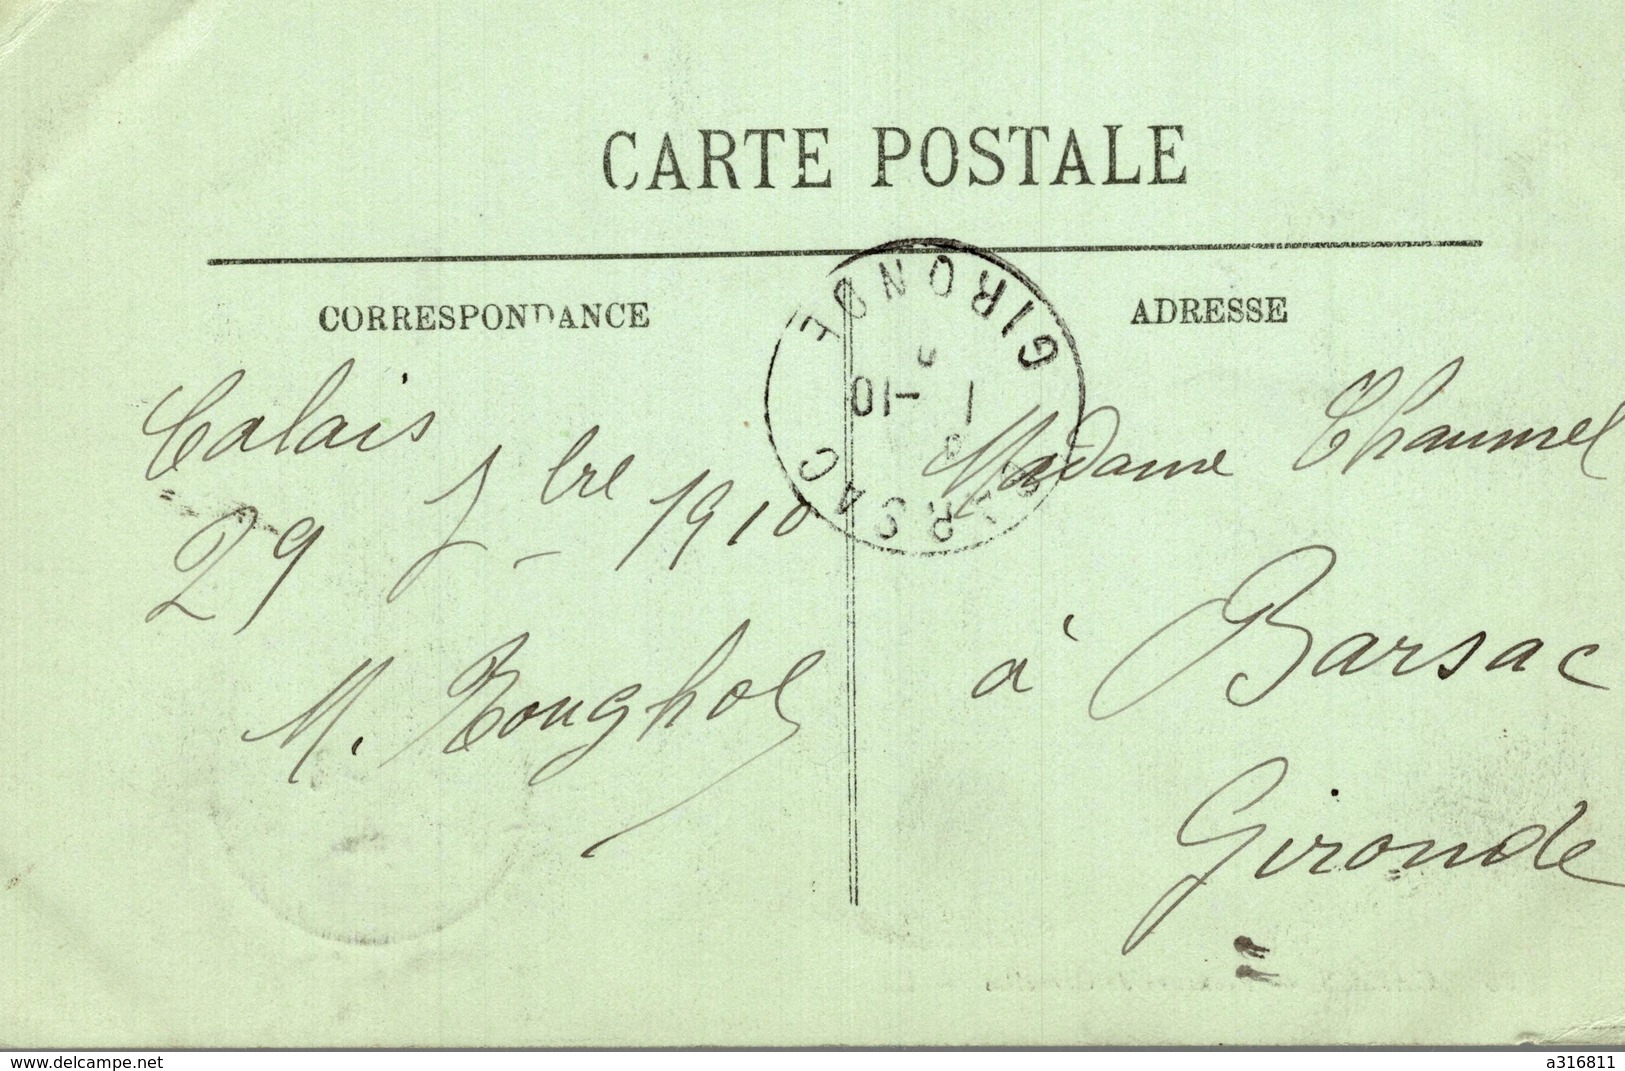 CARTE POSTALE
CORRESPONDANCE
ADRESSE
Calais
29 7bre 1910
M. Roughol
Madame Chaumel
à Barsac
Gironde
BARSAC
GIRONDE
1 -10
www.delcampe.net
a316811